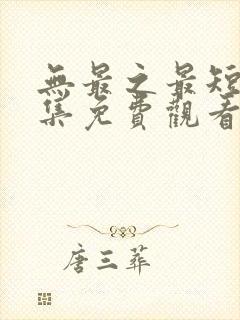 無最之最短
集免費觀看
唐三葬